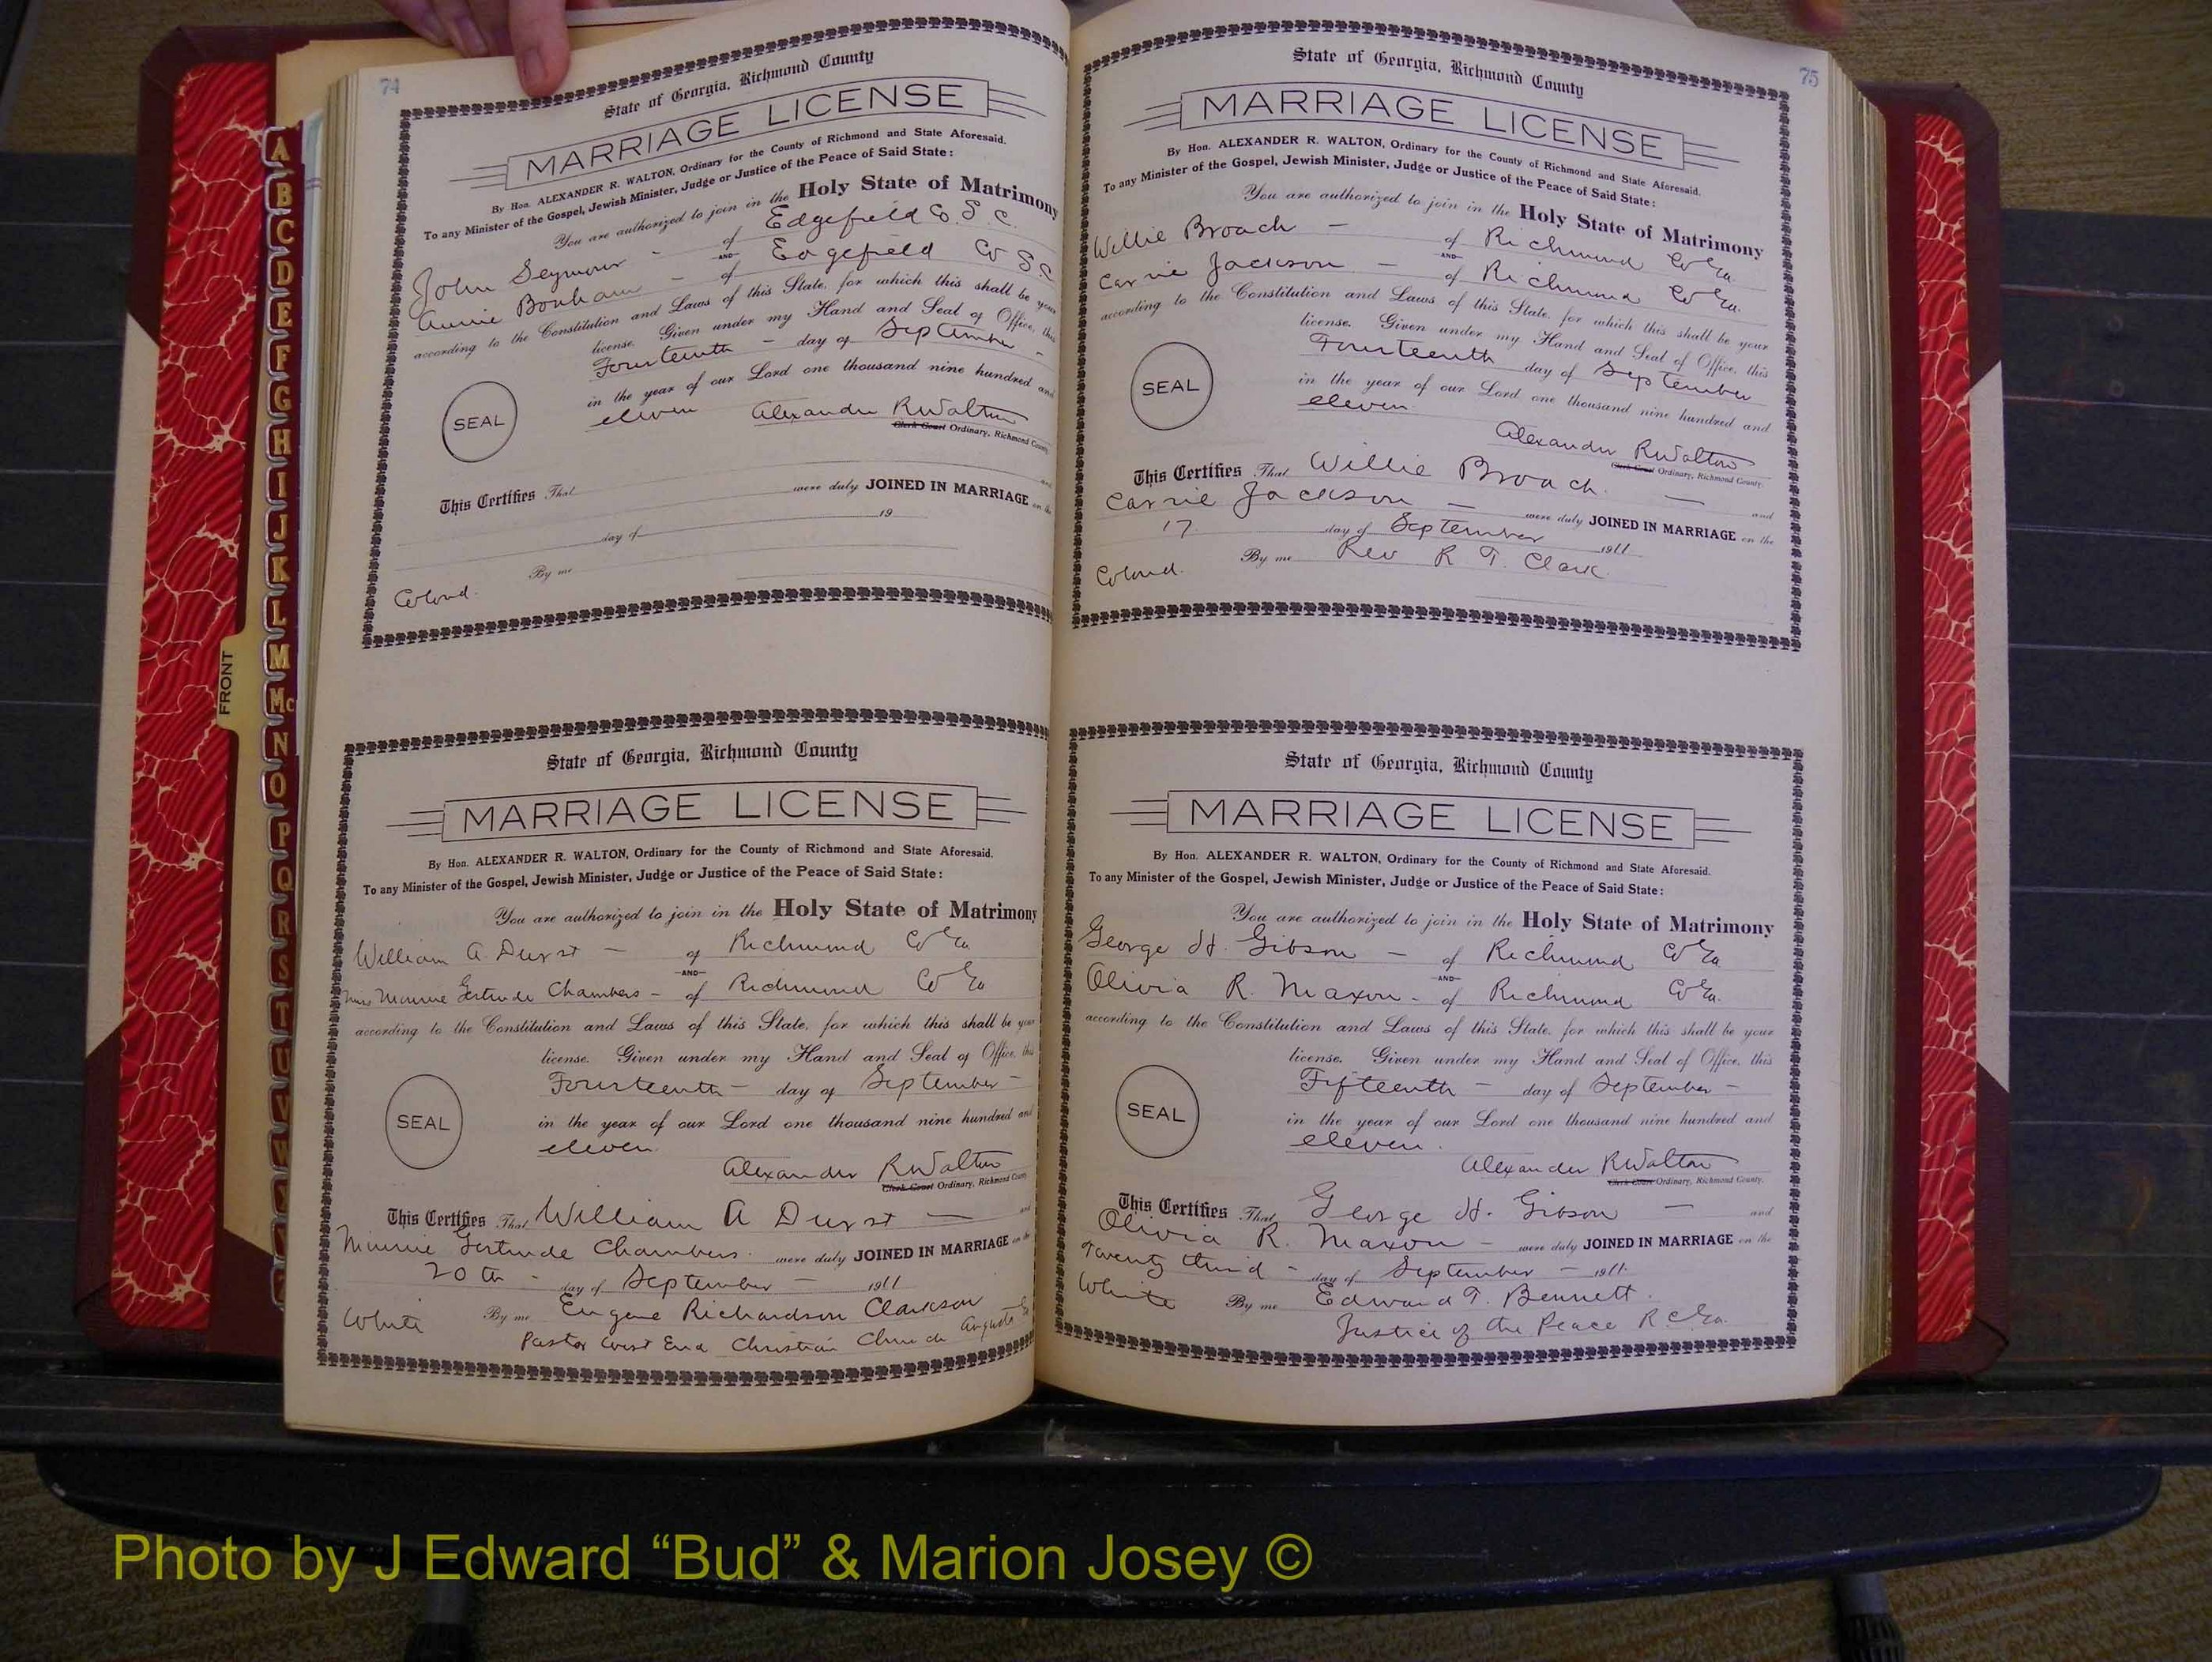 74
State of Georgia, Richmond County
MARRIAGE LICENSE
By Hon. ALEXANDER R. WALTON, Ordinary for the County of Richmond and State Aforesaid.
To any Minister of the Gospel, Jewish Minister, Judge or Justice of the Peace of Said State:
You are authorized to join in the Holy State of Matrimony
John Seymour - of Edgefield Co. S. C.
AND
Annie Bonham - of Edgefield Co S C
according to the Constitution and Laws of this State, for which this shall be your
license. Given under my Hand and Seal of Office, this
Fourteenth - day of September -
SEAL
in the year of our Lord one thousand nine hundred and
eleven Alexander R Walton
Clerk Court Ordinary, Richmond County
This Certifies That and
were duly JOINED IN MARRIAGE on the
day of 19
By me
Colored.
State of Georgia, Richmond County
MARRIAGE LICENSE
By Hon. ALEXANDER R. WALTON, Ordinary for the County of Richmond and State Aforesaid.
To any Minister of the Gospel, Jewish Minister, Judge or Justice of the Peace of Said State:
You are authorized to join in the Holy State of Matrimony
William A. Durst - of Richmond Co Ga
AND
Miss Minnie Gertrude Chambers - of Richmond Co Ga
according to the Constitution and Laws of this State, for which this shall be your
license. Given under my Hand and Seal of Office, this
Fourteenth - day of September -
SEAL
in the year of our Lord one thousand nine hundred and
eleven.
Alexander R Walton
Clerk Court Ordinary, Richmond County
This Certifies That William A Durst - and
Minnie Gertrude Chambers. were duly JOINED IN MARRIAGE on the
20th - day of September - 1911
White By me Eugene Richardson Clarkson
Pastor West End Christian Church Augusta Ga
75
State of Georgia, Richmond County
MARRIAGE LICENSE
By Hon. ALEXANDER R. WALTON, Ordinary for the County of Richmond and State Aforesaid.
To any Minister of the Gospel, Jewish Minister, Judge or Justice of the Peace of Said State:
You are authorized to join in the Holy State of Matrimony
Willie Broach - of Richmond Co Ga.
AND
Carrie Jackson - of Richmond Co Ga.
according to the Constitution and Laws of this State, for which this shall be your
license. Given under my Hand and Seal of Office, this
Fourteenth day of September
SEAL
in the year of our Lord one thousand nine hundred and
eleven.
Alexander R Walton
Clerk Court Ordinary, Richmond County.
This Certifies That Willie Broach. - and
Carrie Jackson - were duly JOINED IN MARRIAGE on the
17. day of September 1911
Colored. By me Rev R T. Clark.
State of Georgia, Richmond County
MARRIAGE LICENSE
By Hon. ALEXANDER R. WALTON, Ordinary for the County of Richmond and State Aforesaid.
To any Minister of the Gospel, Jewish Minister, Judge or Justice of the Peace of Said State:
You are authorized to join in the Holy State of Matrimony
George H. Gibson - of Richmond Co Ga
AND
Olivia R. Maxon - of Richmond Co Ga.
according to the Constitution and Laws of this State, for which this shall be your
license. Given under my Hand and Seal of Office, this
Fifteenth - day of September -
SEAL
in the year of our Lord one thousand nine hundred and
eleven.
Alexander R Walton
Clerk Court Ordinary, Richmond County.
This Certifies That George H. Gibson - and
Olivia R. Maxon - were duly JOINED IN MARRIAGE on the
Twenty third - day of September - 1911.
White By me Edward T. Bennett.
Justice of the Peace R. C. Ga.
A
B
C
D
E
F
G
H
I
J
K
L
M
Mc
N
O
P
Q
R
S
T
U
V
W
FRONT
Photo by J Edward “Bud” & Marion Josey ©